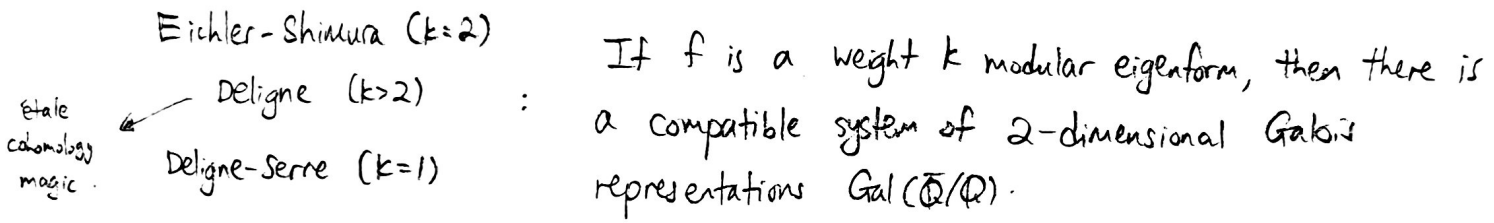 Eichler-Shimura (k=2)
Deligne (k>2) :
Deligne-Serre (k=1)
étale
cohomology
magic.
If f is a weight k modular eigenform, then there is
a compatible system of 2-dimensional Galois
representations Gal(Q̄/Q).